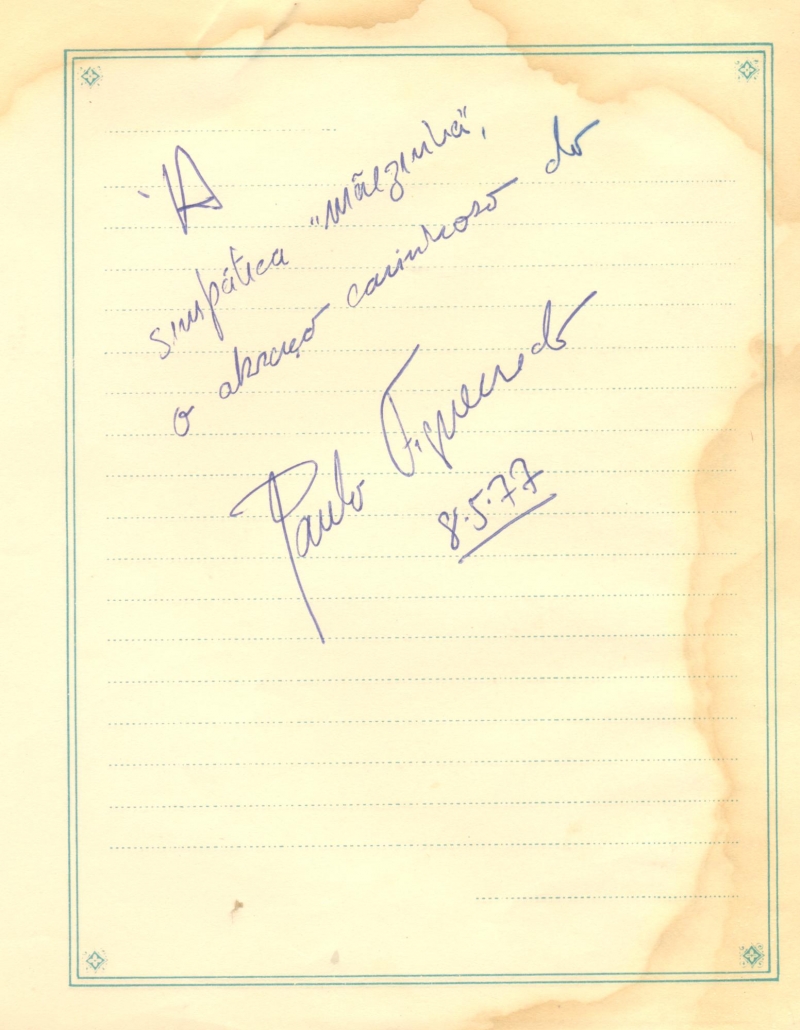 À
simpática "mãezinha",
o abraço carinhoso do
Paulo Figueiredo
8.5.77